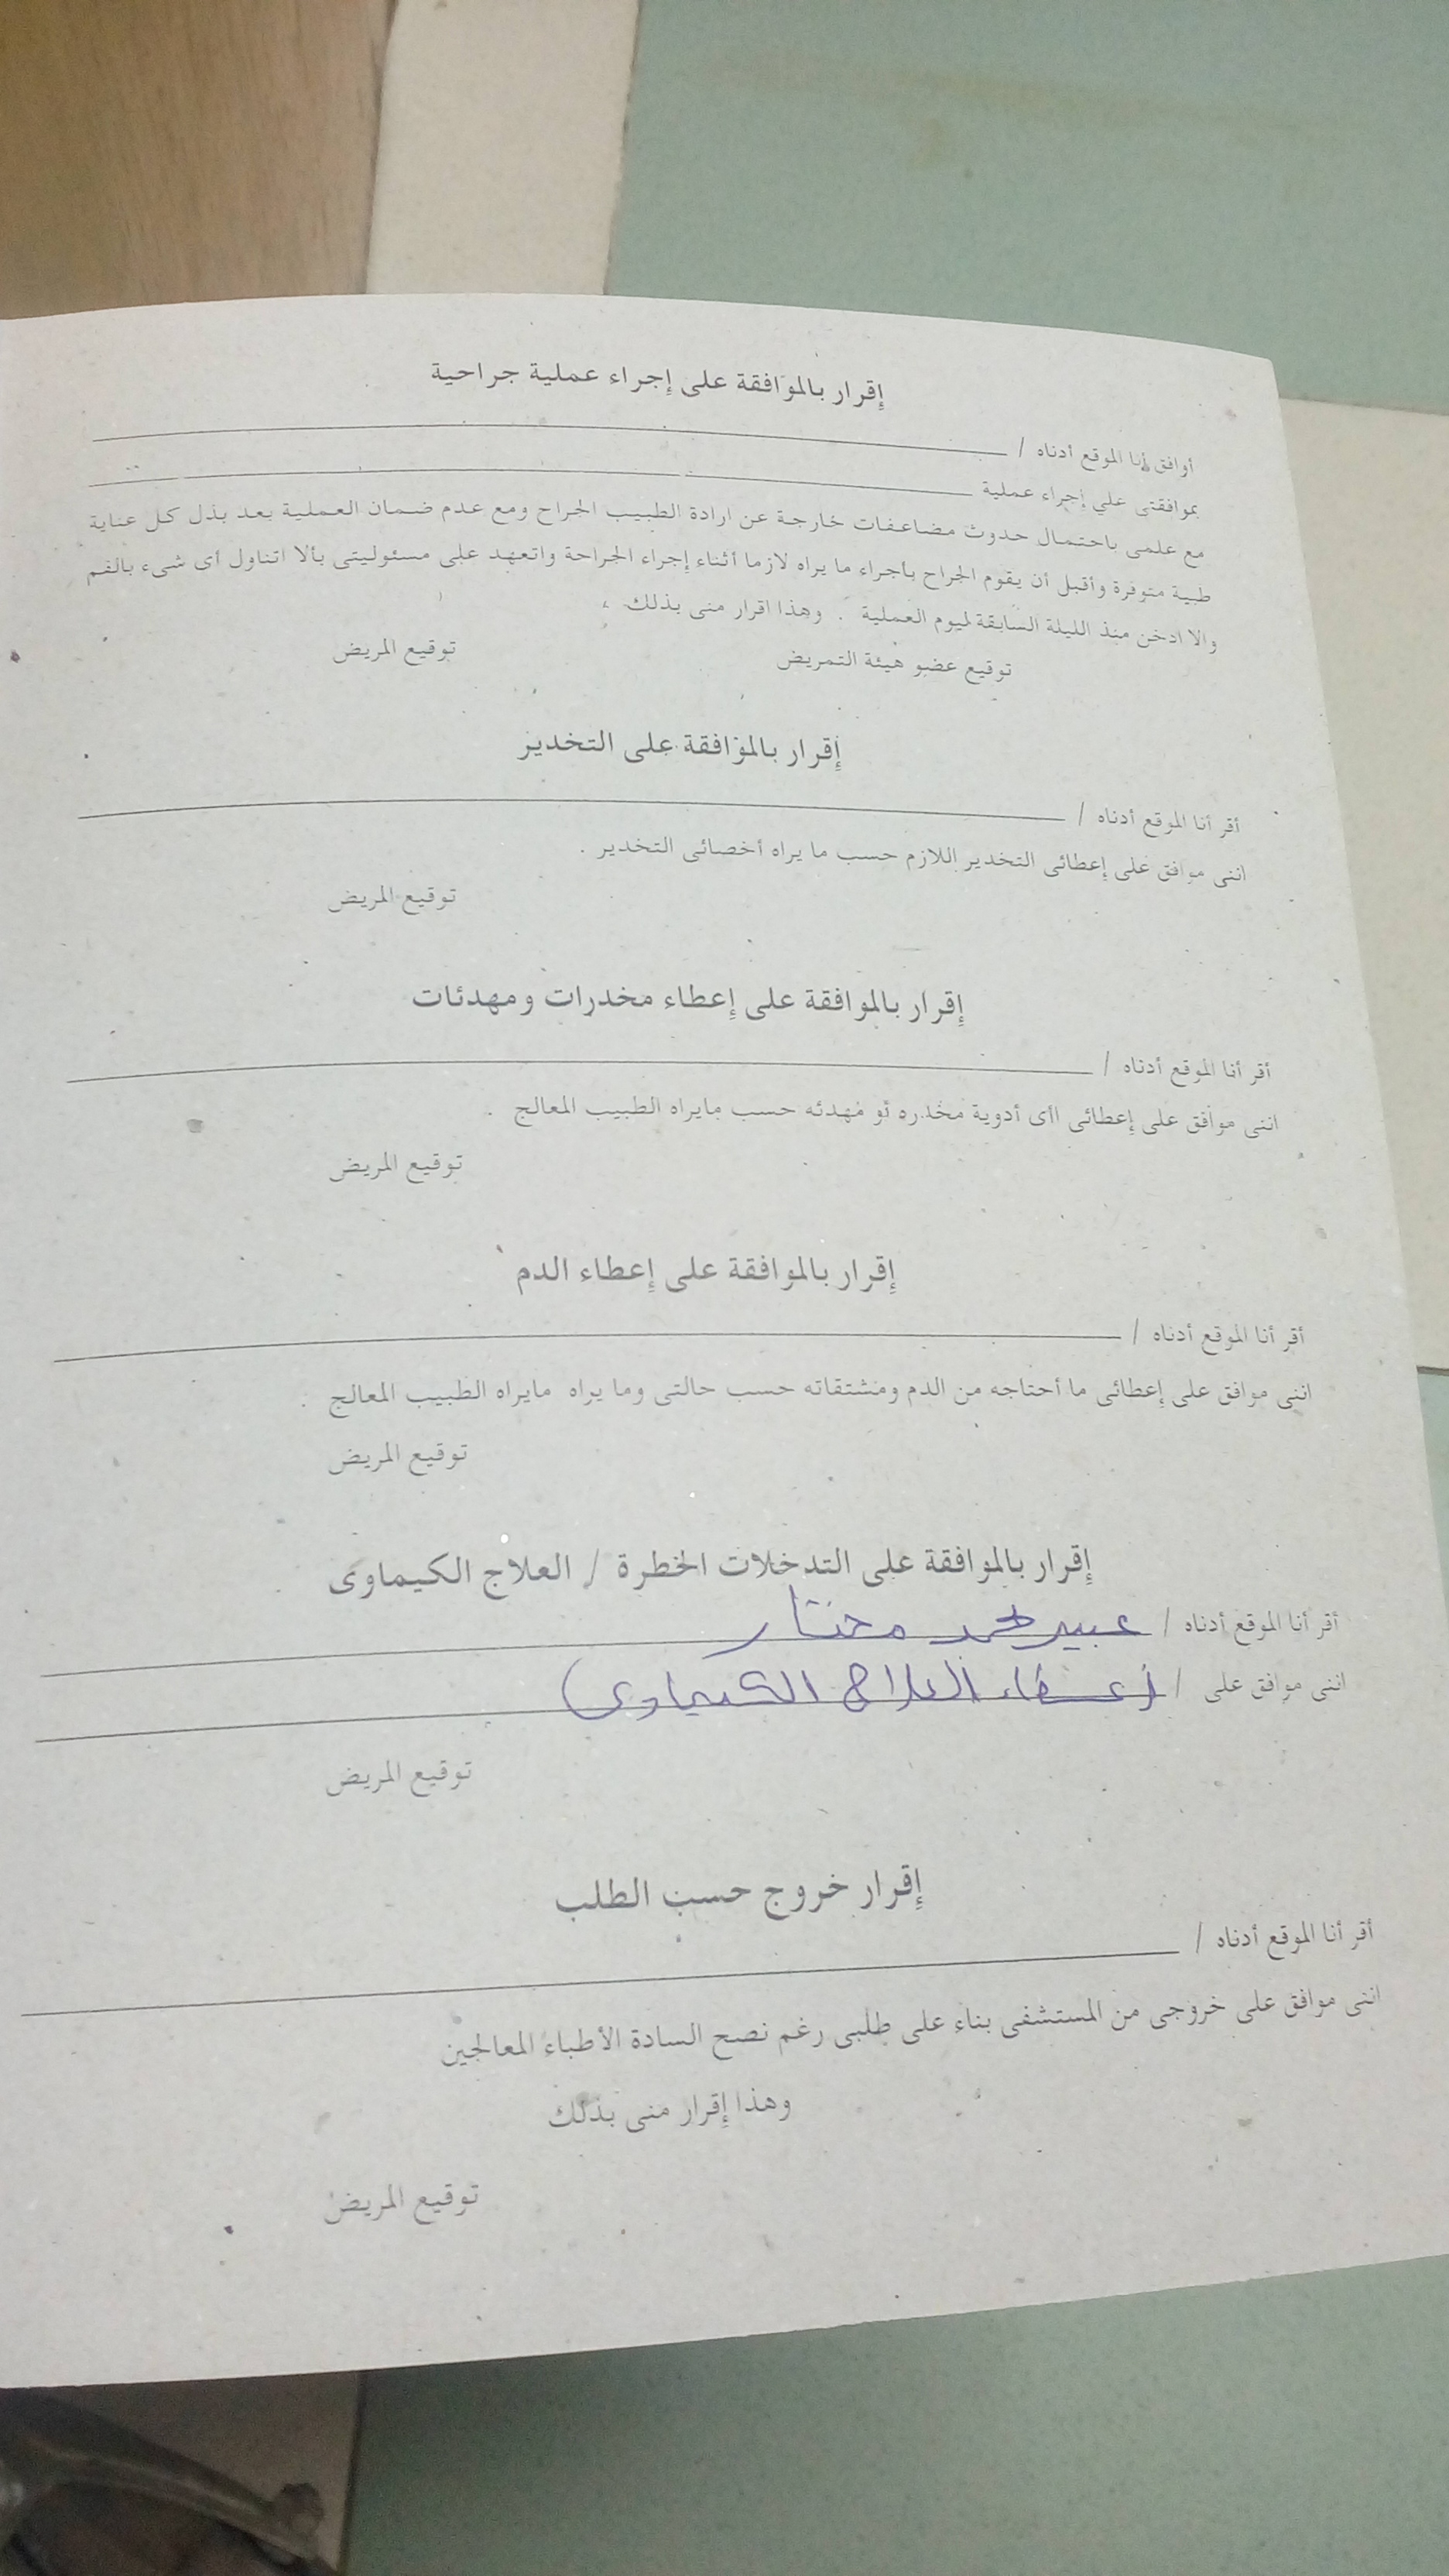 إقرار بالموافقة على إجراء عملية جراحية
أوافق أنا الموقع أدناه /
بموافقتى علي إجراء عملية
مع علمى باحتمال حدوث مضاعفات خارجة عن ارادة الطبيب الجراح ومع عدم ضمان العملية بعد بذل كل عناية
طبية متوفرة وأقبل أن يقوم الجراح بأجراء ما يراه لازما أثناء إجراء الجراحة واتعهد على مسئوليتى بألا اتناول أى شىء بالفم
والا ادخن منذ الليلة السابقة ليوم العملية . وهذا اقرار منى بذلك
توقيع عضو هيئة التمريض توقيع المريض
إقرار بالموافقة على التخدير
أقر أنا الموقع أدناه /
اننى موافق على إعطائى التخدير اللازم حسب ما يراه أخصائى التخدير .
توقيع المريض
إقرار بالموافقة على إعطاء مخدرات ومهدئات
أقر أنا الموقع أدناه /
اننى موافق على إعطائى اأى أدوية مخدره أو مهدئه حسب مايراه الطبيب المعالج .
توقيع المريض
إقرار بالموافقة على إعطاء الدم
أقر أنا الموقع أدناه /
اننى موافق على إعطائى ما أحتاجه من الدم ومشتقاته حسب حالتى وما يراه مايراه الطبيب المعالج .
توقيع المريض
إقرار بالموافقة على التدخلات الخطرة / العلاج الكيماوى
أقر أنا الموقع أدناه / عبير محمد مختار
اننى موافق على / (عطاء العلاج الكيماوى)
توقيع المريض
إقرار خروج حسب الطلب
أقر أنا الموقع أدناه /
اننى موافق على خروجى من المستشفى بناء على طلبى رغم نصح السادة الأطباء المعالجين
وهذا إقرار منى بذلك
توقيع المريض